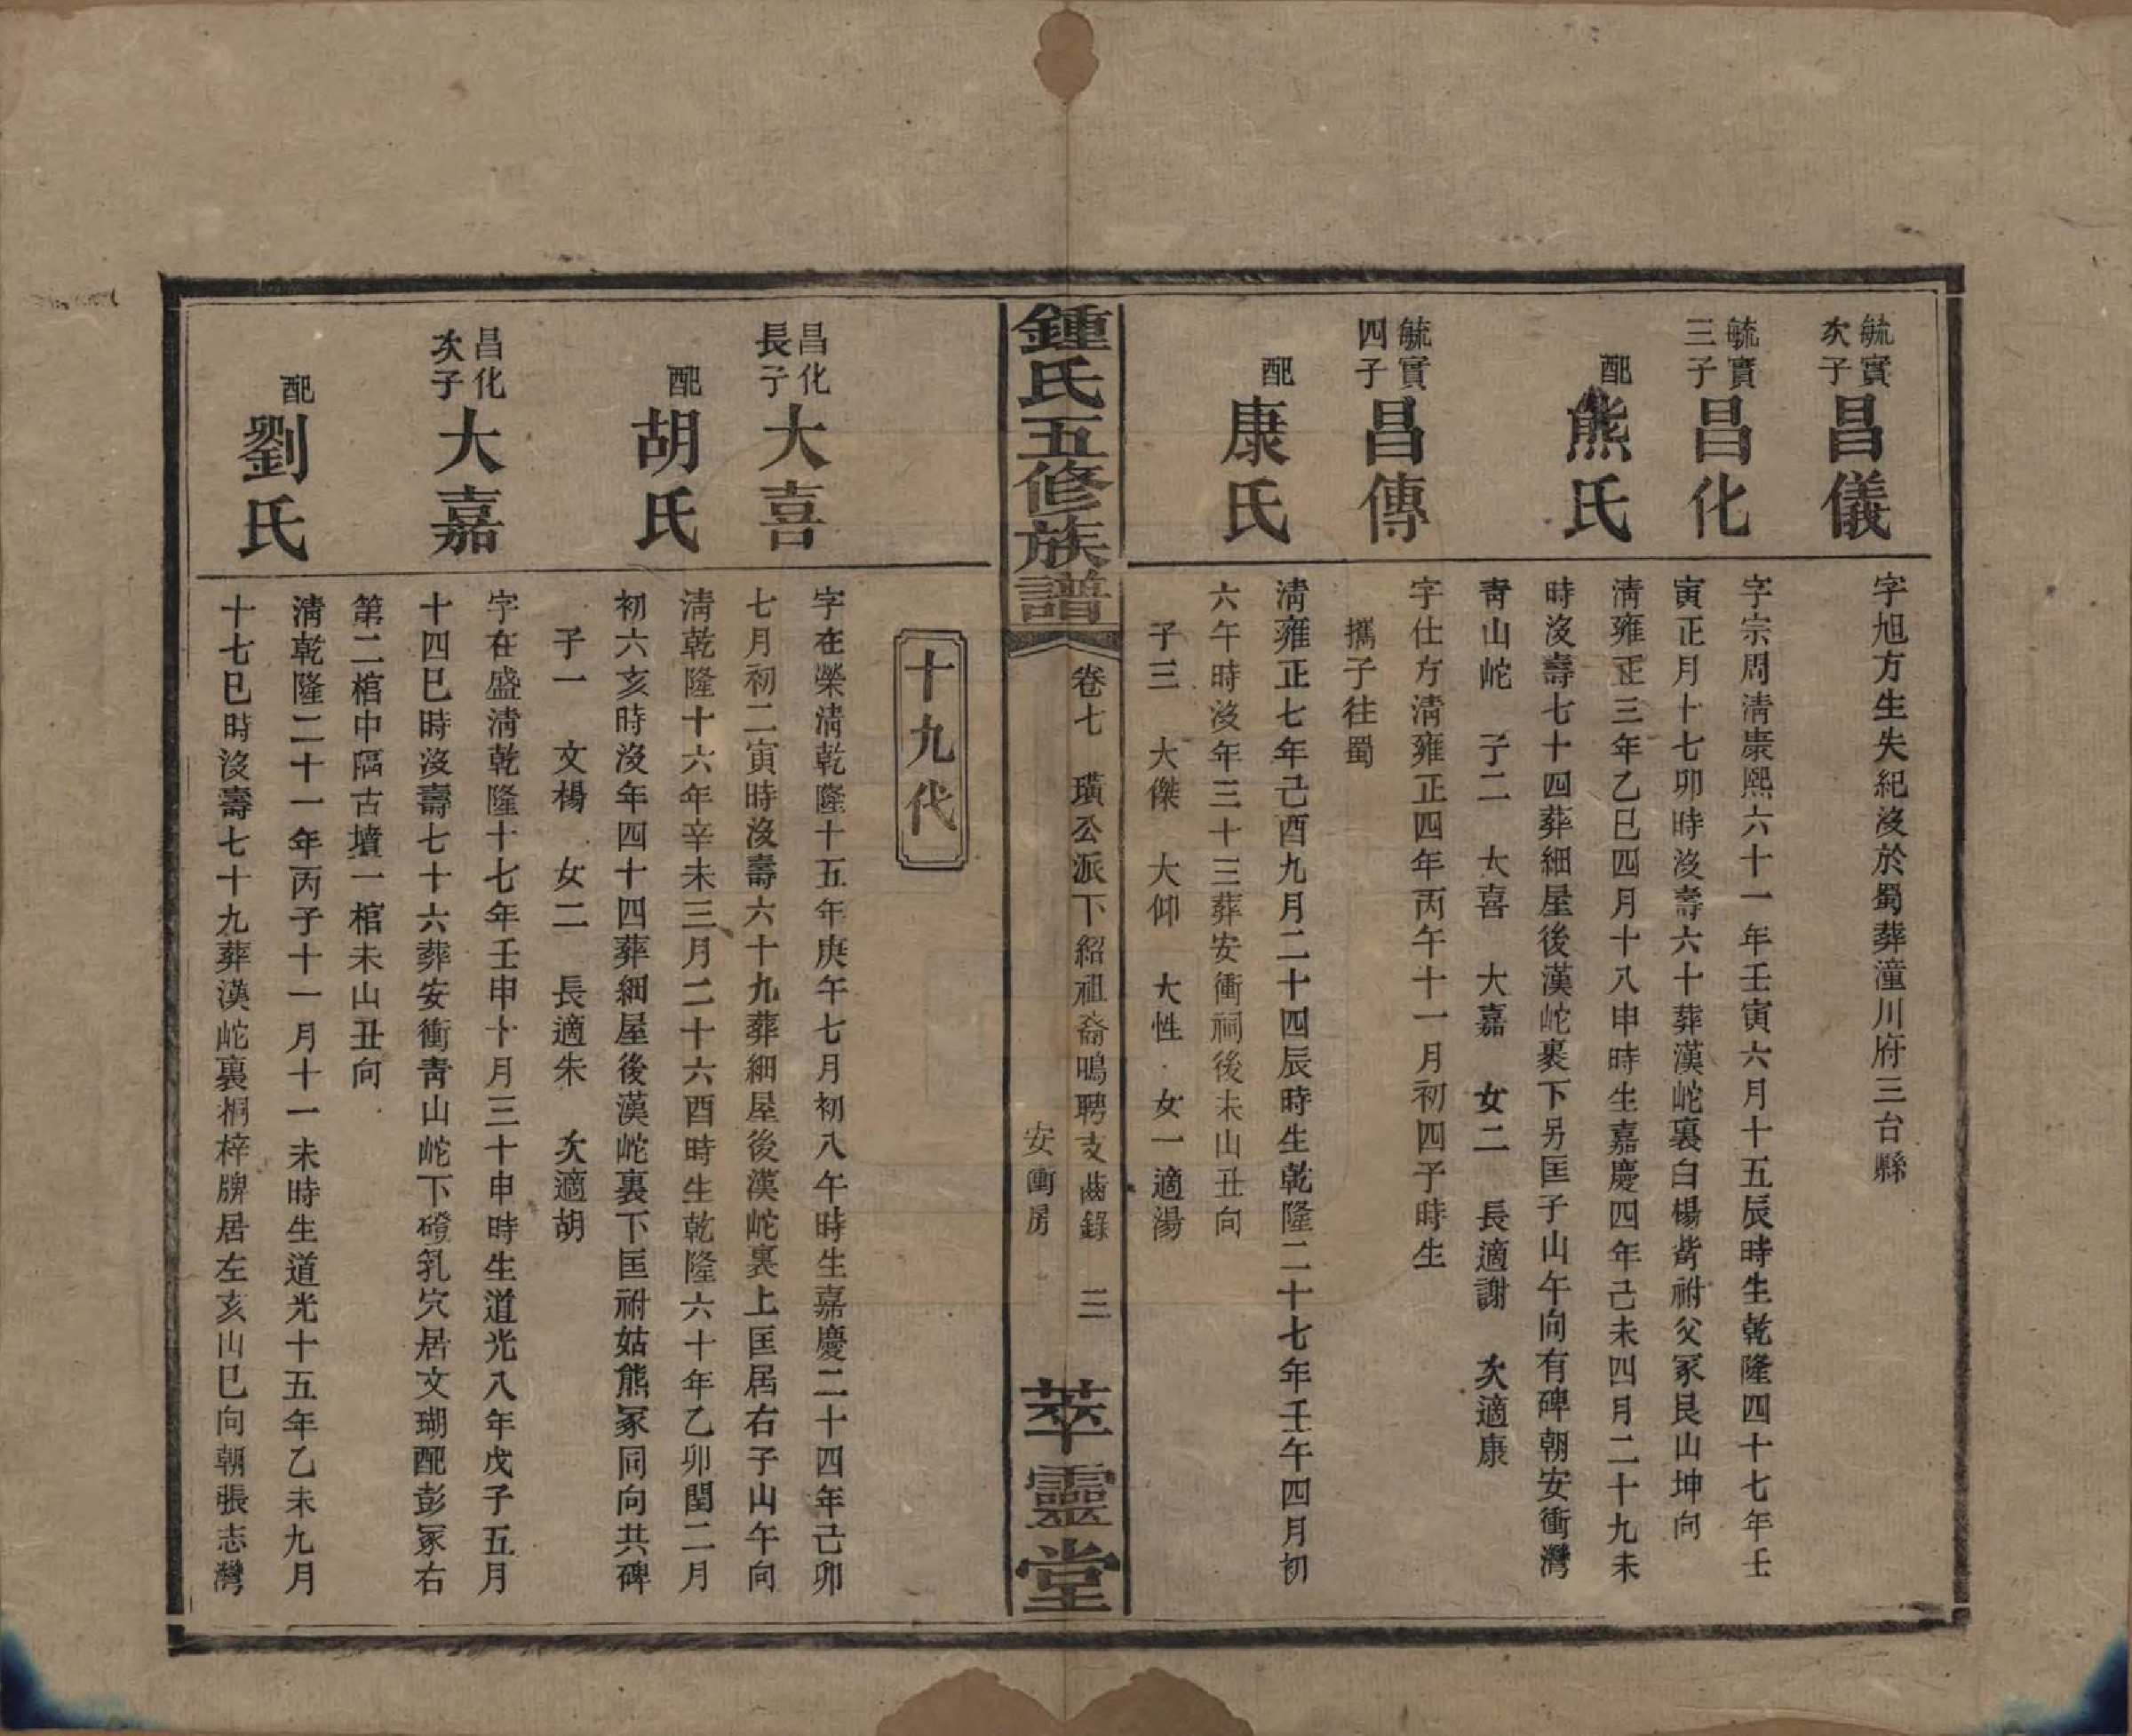 毓實
次子
昌儀
字旭方生失紀沒於蜀葬潼川府三台縣
毓實
三子
昌化
字宗周清康熙六十一年壬寅六月十五辰時生乾隆四十七年壬
寅正月十七卯時沒壽六十葬漢岮裏白楊峕祔父冢艮山坤向
配
熊氏
清雍正三年乙巳四月十八申時生嘉慶四年己未四月二十九未
時沒壽七十四葬細屋後漢岮裹下另匡子山午向有碑朝安衝灣
靑山岮 子二 大喜 大嘉 女二 長適謝 次適康
毓實
四子
昌傳
字仕方清雍正四年丙午十一月初四子時生
攜子往蜀
配
康氏
清雍正七年己酉九月二十四辰時生乾隆二十七年壬午四月初
六午時沒年三十三葬安衝祠後未山丑向
子三 大傑 大仰 大性 女一適湯
鍾氏五修族譜
卷七 璜公派下紹祖裔鳴聘支齒錄 三
安衝房
萃靈堂
十九代
昌化
長子
大喜
字在榮清乾隆十五年庚午七月初八午時生嘉慶二十四年己卯
七月初二寅時沒壽六十九葬細屋後漢岮裏上匡居右子山午向
配
胡氏
清乾隆十六年辛未三月二十六酉時生乾隆六十年乙卯閏二月
初六亥時沒年四十四葬細屋後漢岮裏下匡祔姑熊冢同向共碑
子一 文楊 女二 長適朱 次適胡
昌化
次子
大嘉
字在盛清乾隆十七年壬申十月三十申時生道光八年戊子五月
十四巳時沒壽七十六葬安衝靑山岮下磴乳穴居文瑚配彭冢右
第二棺中隔古墳一棺未山丑向
配
劉氏
清乾隆二十一年丙子十一月十一未時生道光十五年乙未九月
十七巳時沒壽七十九葬漢岮裏桐梓牌居左亥山巳向朝張志灣